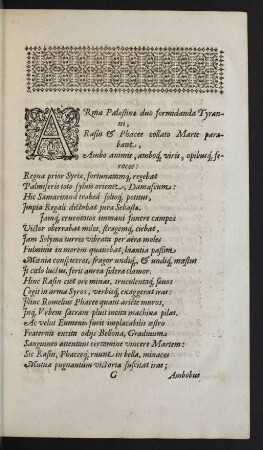 ARma Palæstinæ duo formidanda Tyran-
ni,
Rasin & Phacee collato Marte para-
bant,
Ambo animis, amboq; viris, opibusq; fe-
roces:
Regna prior Syriæ, fortunatamq; regebat
Palmiferis toto sylvis oriente, Damascum:
Hic Samaritanâ trabeâ, solioq; potitus,
Jura legali dictabat jura Sebastæ.
Jamq; cruentatos immani funere campos
Victor oberrabat miles, stragemq; ciebat,
Jam Solymæ turres vibrata per aëra moles
Fulmineo in morem quatiebat, hiantia passim
Mœnia conspiceres, fragor undiq; & undiq; mœstus
It cœlo luctus, ferit aurea sidera clamor.
Hinc Rasin citat ore minas, truculentaq; sævos
Cogit in arma Syros, verbisq; exaggerat iras:
Illinc Romelius Phacee quant ariete muros,
Inq; Urbem sacram pluit incita machina pilas.
Ac velut Eumenio furit implacabilis œstro
Fraternis excita odiis Bellona, Gradivum
Sanguineo attentans certamine vincere Martem:
Sic Rasin, Phaceeq; ruunt in bella, minaces
Mutua pugnantum victoria suscitat iras;
G Ambobus